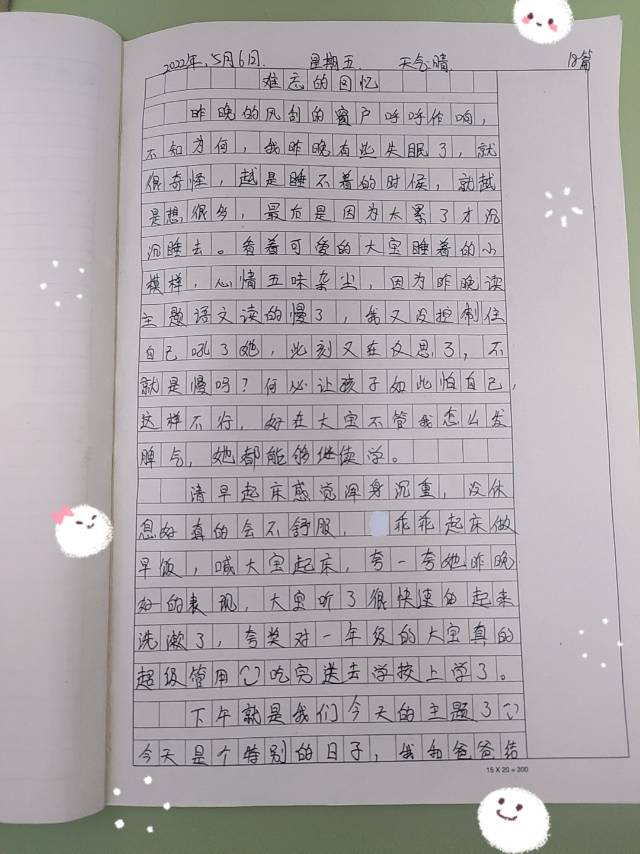 2022年.5月6日. 星期五. 天气:晴. 18篇
难忘的回忆
昨晚的风刮的窗户呼呼作响，
不知为何，我昨晚有些失眠了，就
很奇怪，越是睡不着的时候，就越
是想很多，最后是因为太累了才沉
沉睡去。看着可爱的大宝睡着的小
模样，心情五味杂尘，因为昨晚读
主题语文读的慢了，我又没控制住
自己吼了她，此刻又在反思了，不
就是慢吗？何必让孩子如此怕自己，
这样不行，好在大宝不管我怎么发
脾气，她都能够继续学。
清早起床感觉浑身沉重，没休
息好真的会不舒服，乖乖起床做
早饭，喊大宝起床，夸一夸她昨晚
好的表现，大宝听了很快速的起来
洗漱了，夸奖对一年级的大宝真的
超级管用吃完送去学校上学了。
下午就是我们今天的主题了
今天是个特别的日子，我和爸爸结
15 X 20 = 300